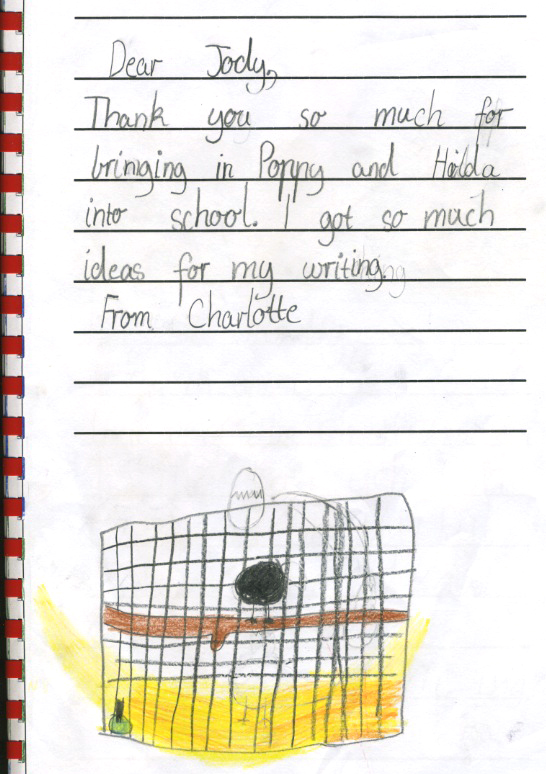 Dear Jody,
Thank you so much for
bringing in Poppy and Hilda
into school. I got so much
ideas for my writing
From Charlotte